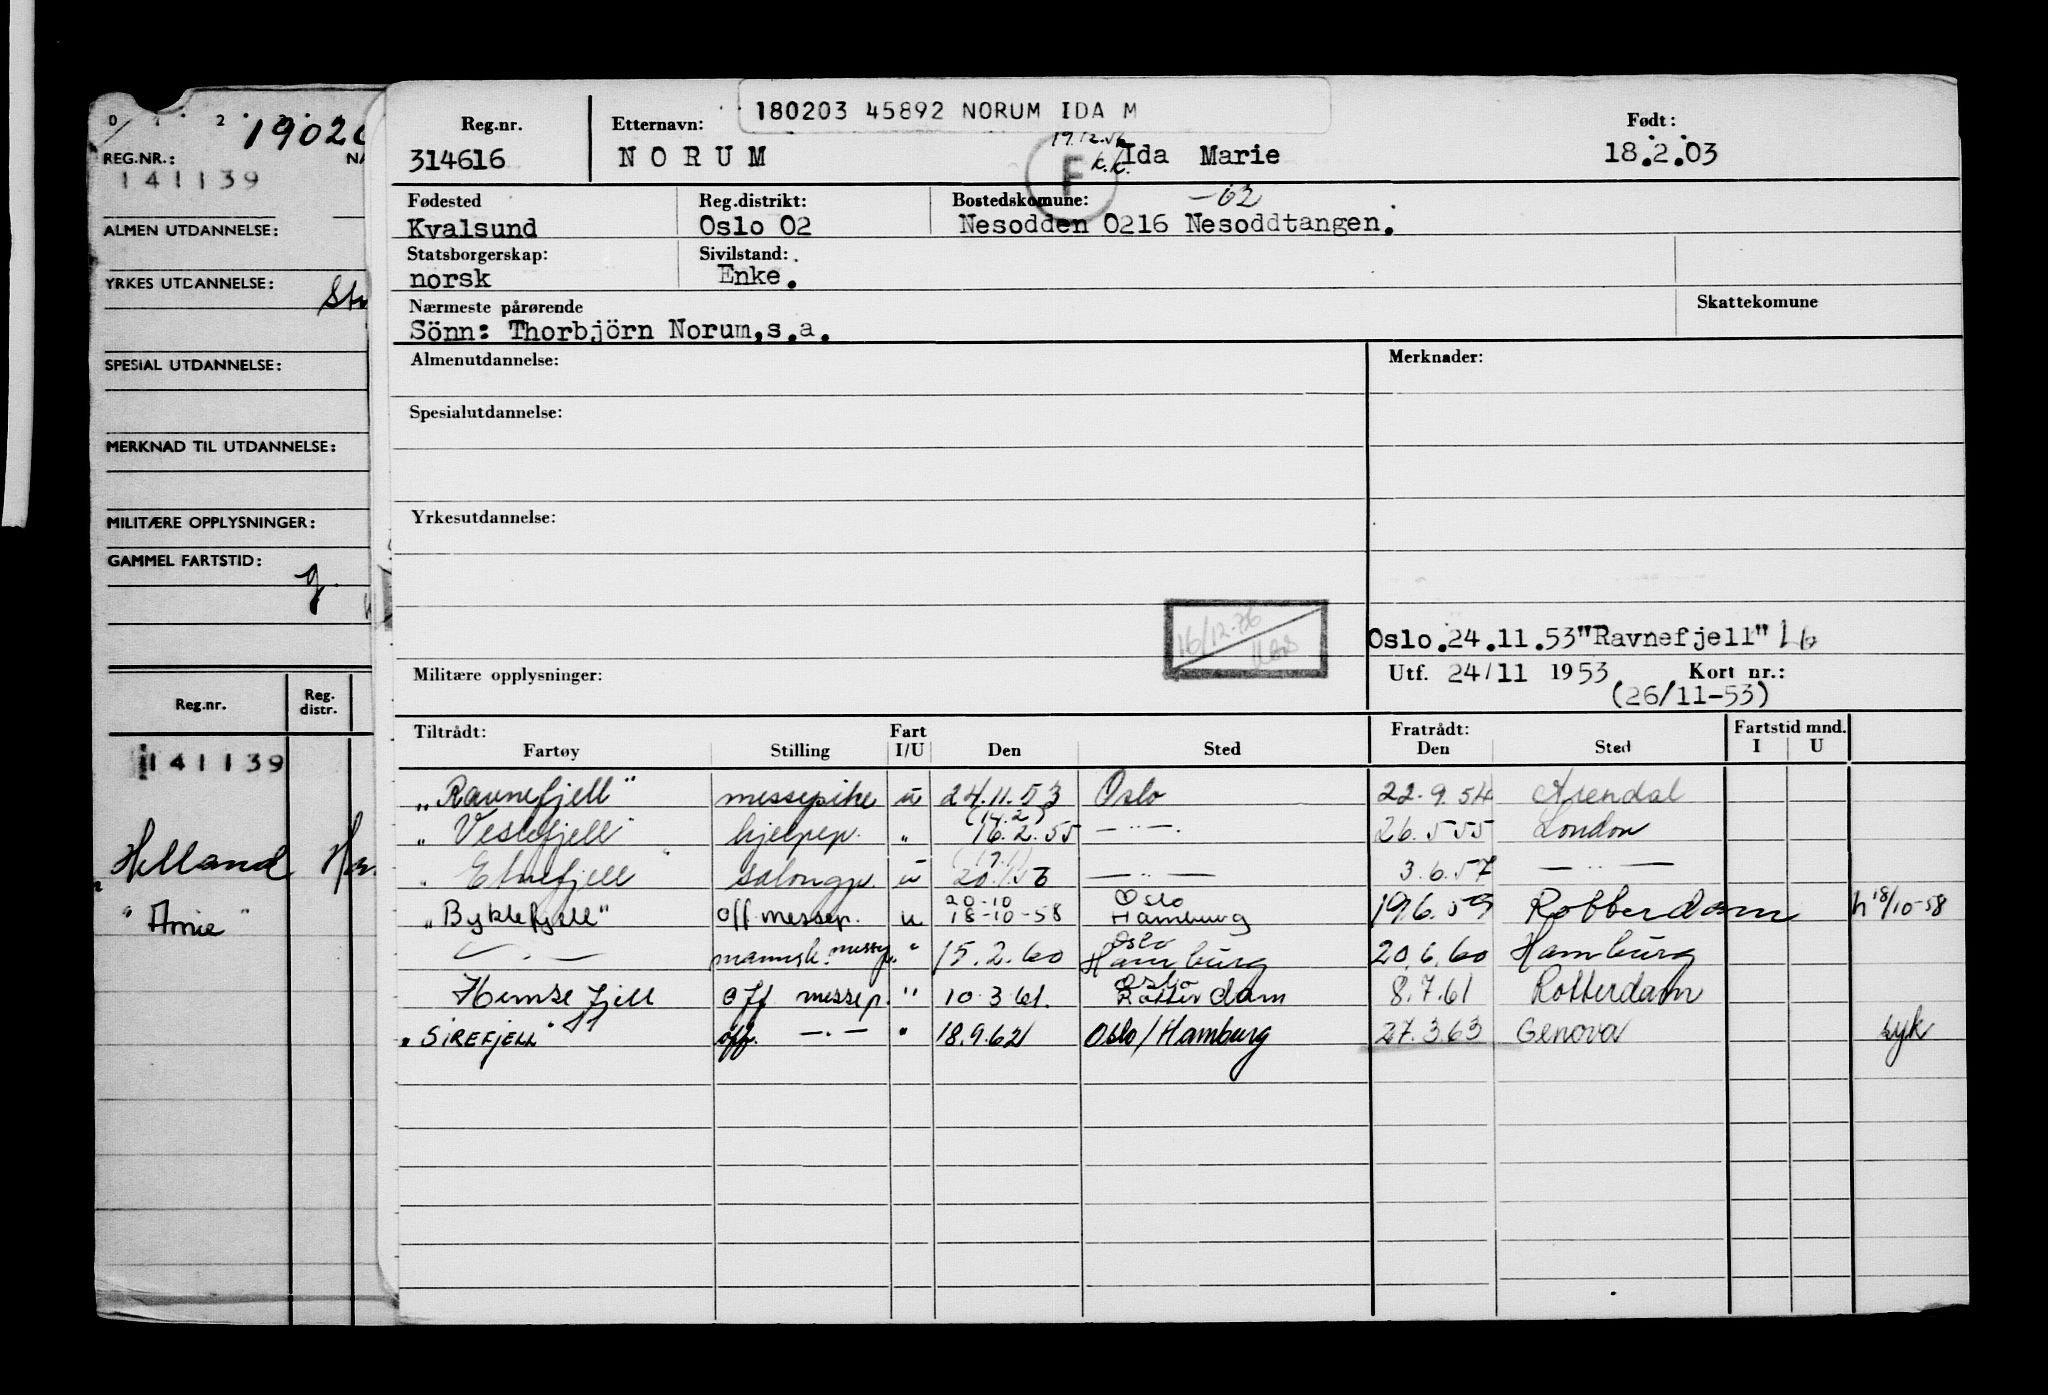 0 1 2 2
19020
REG.NR.:
NA
141139
ALMEN UTDANNELSE:
YRKES UTDANNELSE:
SPESIAL UTDANNELSE:
MERKNAD TIL UTDANNELSE:
MILITÆRE OPPLYSNINGER:
GAMMEL FARTSTID:
Reg.nr. Reg. distr.
141139
Helland
"Arnie"
180203 45892 NORUM IDA M
Reg.nr. Etternavn: Født:
19.12.56
k.k.
F
314616 NORUM Ida Marie 18.2.03
Fødested Reg.distrikt: Bostedskomune: -02
Kvalsund Oslo 02 Nesodden 0216 Nesoddtangen.
Statsborgerskap: Sivilstand:
norsk Enke.
Nærmeste pårørende Skattekomune
Sönn: Thorbjörn Norum,s.a.
Almenutdannelse: Merknader:
Spesialutdannelse:
Yrkesutdannelse:
16/12-76
Oslo.24.11.53"Ravnefjell"
Militære opplysninger: Utf. 24/11 1953 Kort nr.:
(26/11-53)
Tiltrådt: Fart Fratrådt: Fartstid mnd.
Fartøy Stilling I/U Den Sted Den Sted I U
"Ravnefjell" messepike u 24.11.53 Oslo 22.9.54 Arendal
(14.2)
" Veslefjell" hjelpep. " 16.2.55 — " — 26.5.55 London
(17.1)
" Etnefjell " salongp. u 20.1.56 — " — 3.6.57 — " —
20-10 Oslo
"Byklefjell" off messep. u 18-10-58 Hamburg 19.6.59 Rotterdam h 18/10-58
Oslo
— " — mannsk. messep. " 15.2.60 Hamburg 20.6.60 Hamburg
Oslo
Hemsefjell off messep. " 10.3.61. Rotterdam 8.7.61 Rotterdam
"SIREFJELL" off. — " — " 18.9.62 Oslo/Hamburg 27.3.63 Genova syk